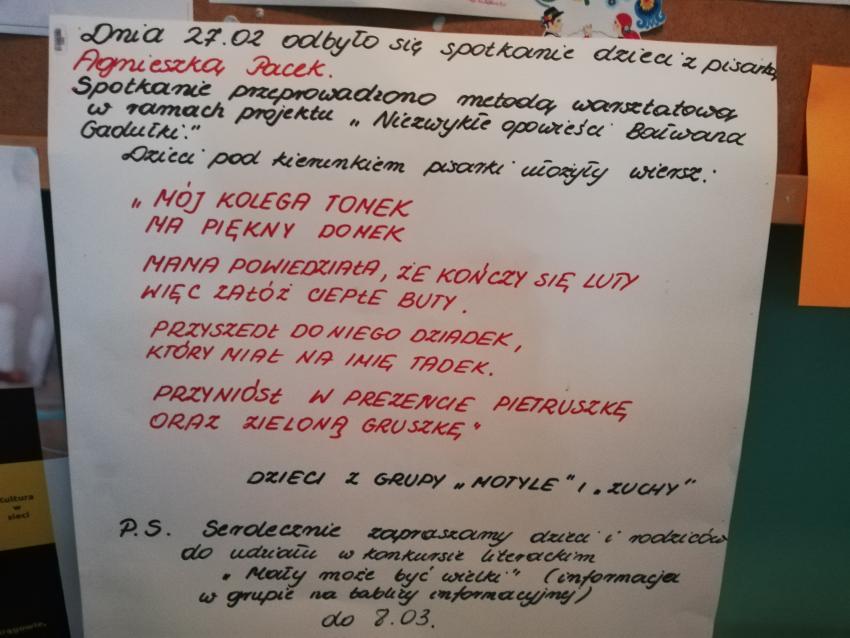 Dnia 27.02 odbyło się spotkanie dzieci z pisarką
Agnieszką Pacek.
Spotkanie przeprowadzono metodą warsztatową
w ramach projektu „Niezwykłe opowieści Bałwana
Gadułki."
Dzieci pod kierunkiem pisarki ułożyły wiersz:
„MÓJ KOLEGA TOMEK
MA PIĘKNY DOMEK
MAMA POWIEDZIAŁA, ŻE KOŃCZY SIĘ LUTY
WIĘC ZAŁÓŻ CIEPŁE BUTY.
PRZYSZEDŁ DO NIEGO DZIADEK,
KTÓRY MIAŁ NA IMIĘ TADEK.
PRZYNIÓSŁ W PREZENCIE PIETRUSZKĘ
ORAZ ZIELONĄ GRUSZKĘ"
DZIECI Z GRUPY „MOTYLE" I „ZUCHY"
P.S. Serdecznie zapraszamy dzieci i rodziców
do udziału w konkursie literackim
„Mały może być wielki" (informacja
w grupie na tablicy informacyjnej)
do 8.03.
Kultura
w
sieci